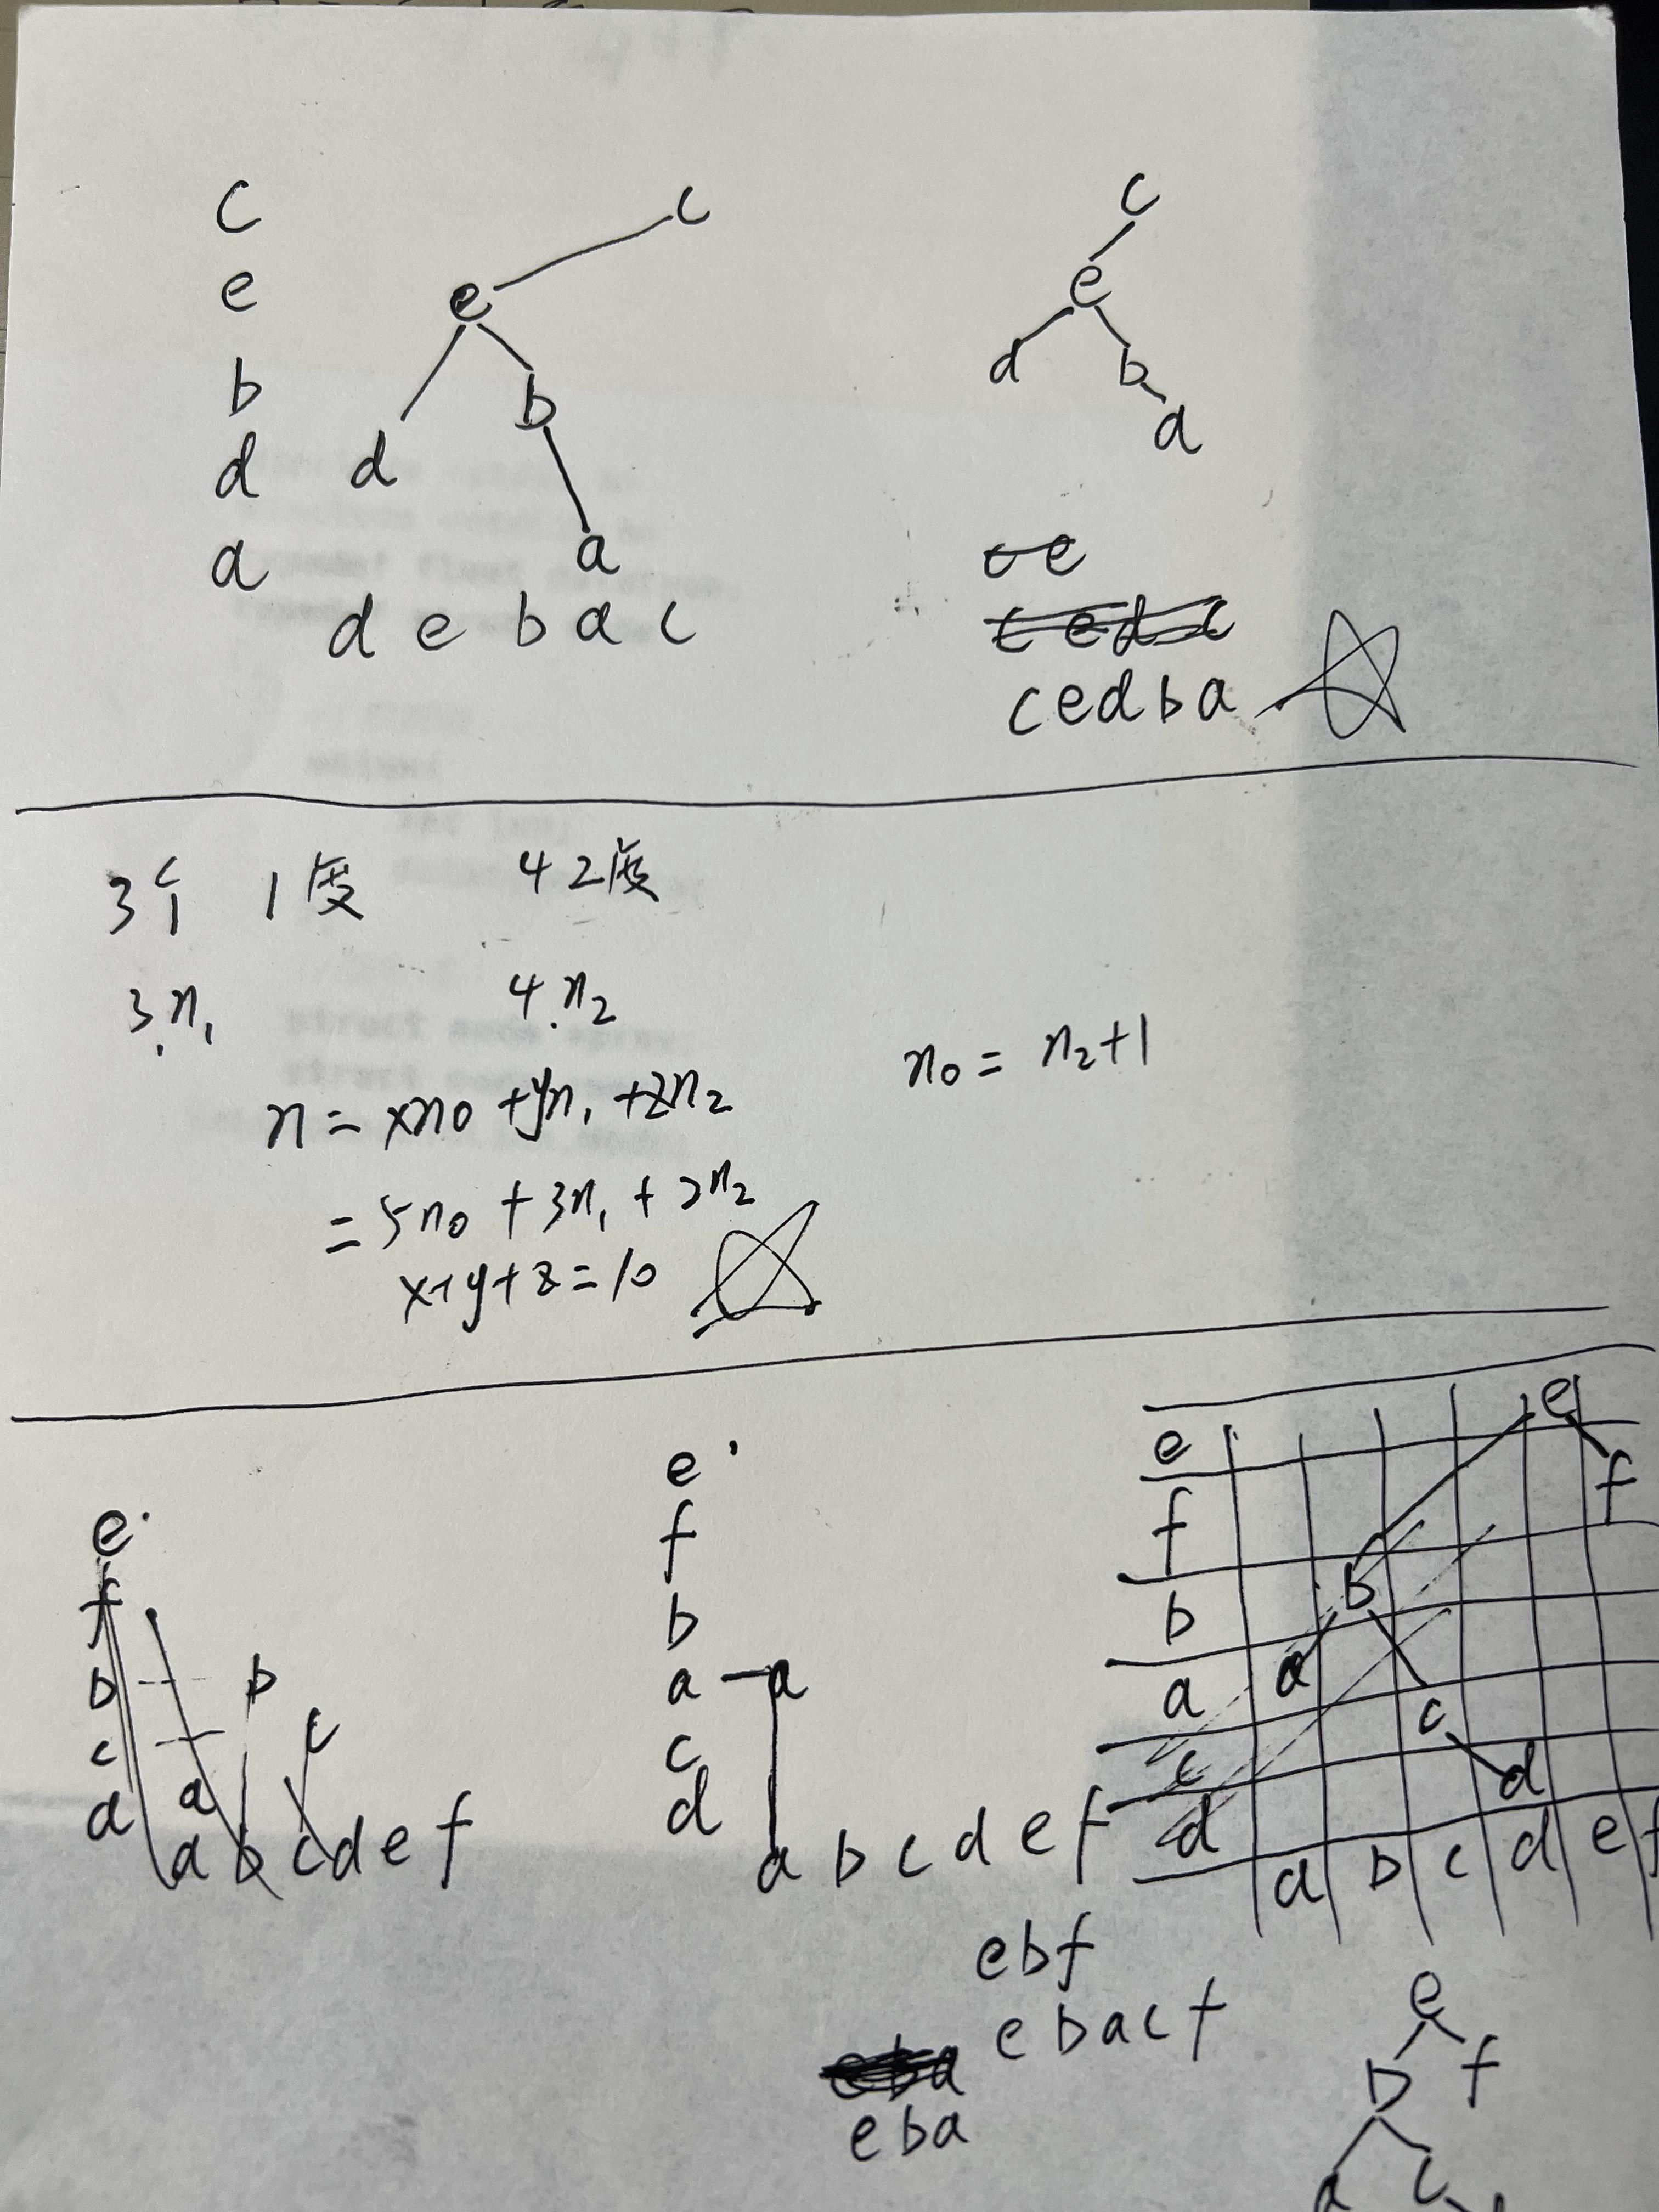 c
e
b
d
a
c
e
d
b
a
d e b a c
c
e
d
b
a
cedba
3个 1度 4 2度
3n₁ 4n₂
n₀ = n₂+1
n = xn₀ + yn₁ + zn₂
= 5n₀ + 3n₁ + 2n₂
x+y+z=10
e
f
b
c
d
b
c
a
a b c d e f
e
f
b
a — a
c
d
a b c d e f
e
f
b
a
c
d
e
f
b
a
c
d
a b c d e f
ebf
ebacf
eba
e
b f
a c